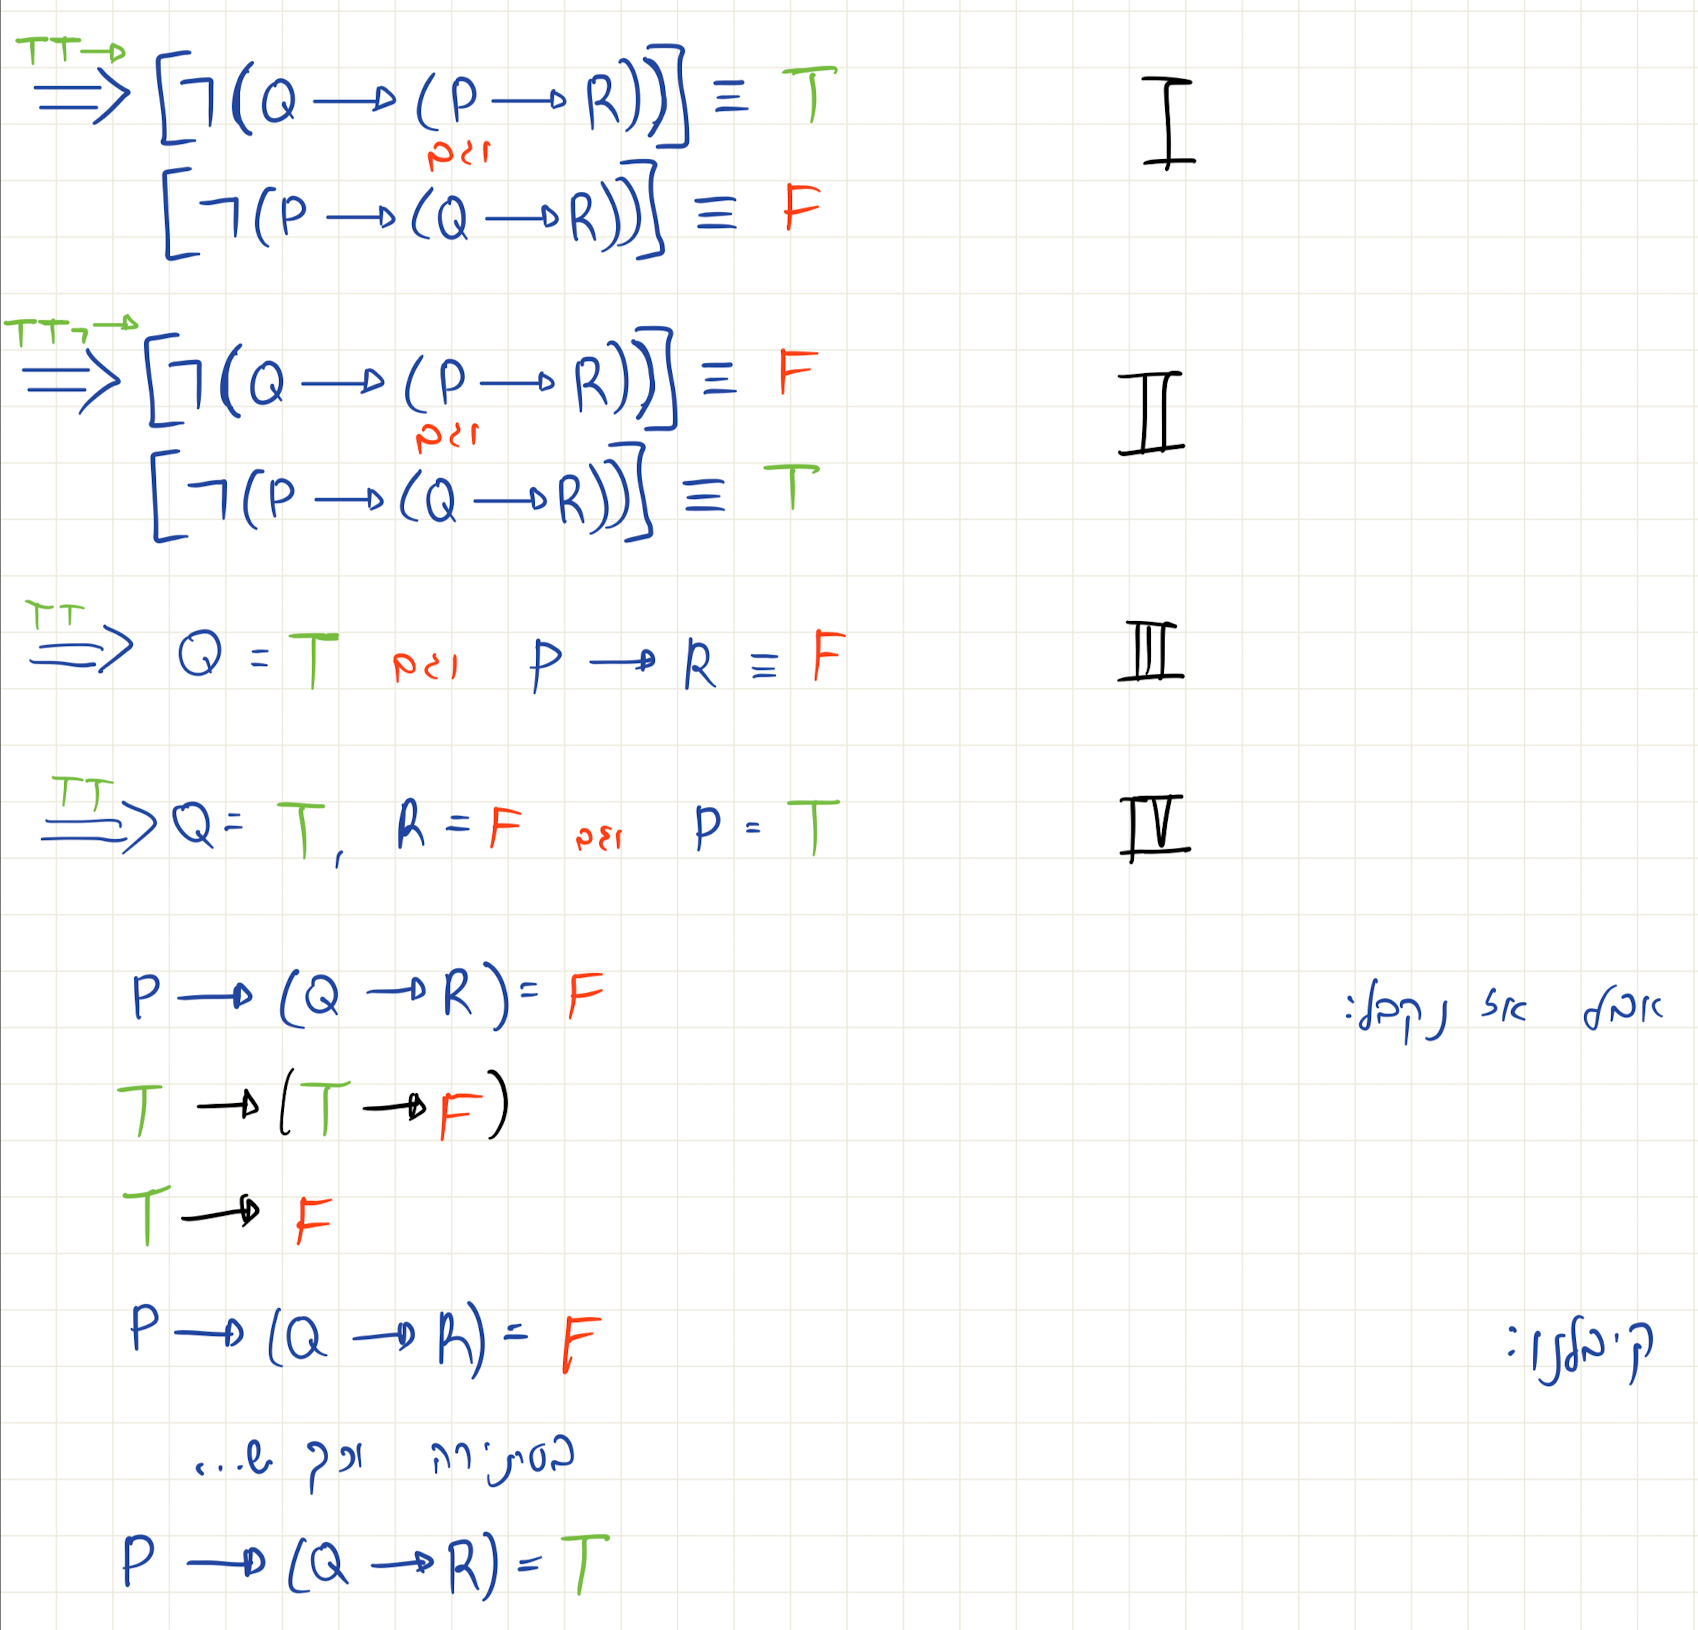 TT→
⟹ [¬(Q → (P → R))] ≡ T I
וגם
[¬(P → (Q → R))] ≡ F
TT¬→
⟹ [¬(Q → (P → R))] ≡ F II
וגם
[¬(P → (Q → R))] ≡ T
TT
⟹ Q = T וגם P → R ≡ F III
TT
⟹ Q = T, R = F וגם P = T IV
אבל אז נקבל:
P → (Q → R) = F
T → (T → F)
T → F
קיבלנו:
P → (Q → R) = F
בסתירה לכך ש...
P → (Q → R) = T